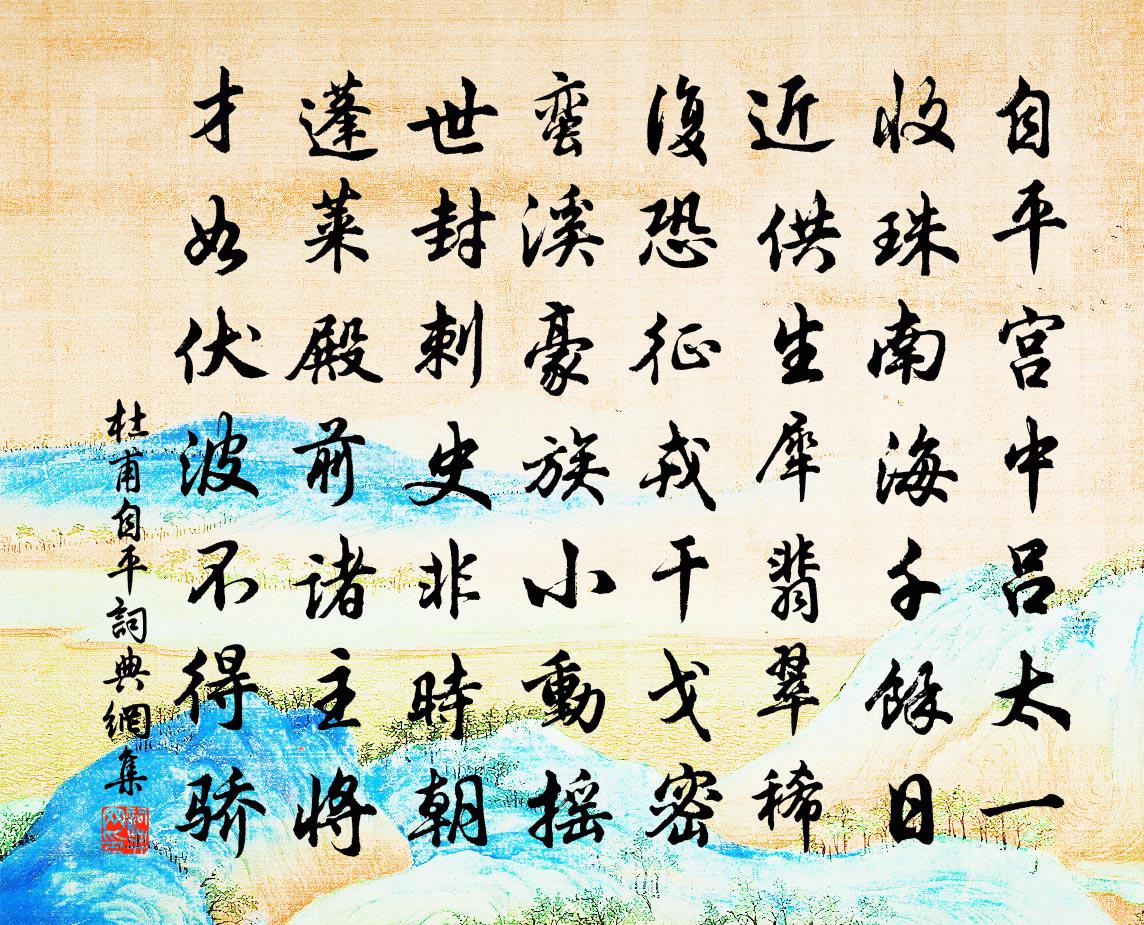 自平宫中吕太一
收珠南海千餘日
近供生犀翡翠稀
復恐征戎干戈密
蛮溪豪族小動摇
世封刺史非時朝
蓬莱殿前諸主將
才如伏波不得骄
杜甫自平詞典網集